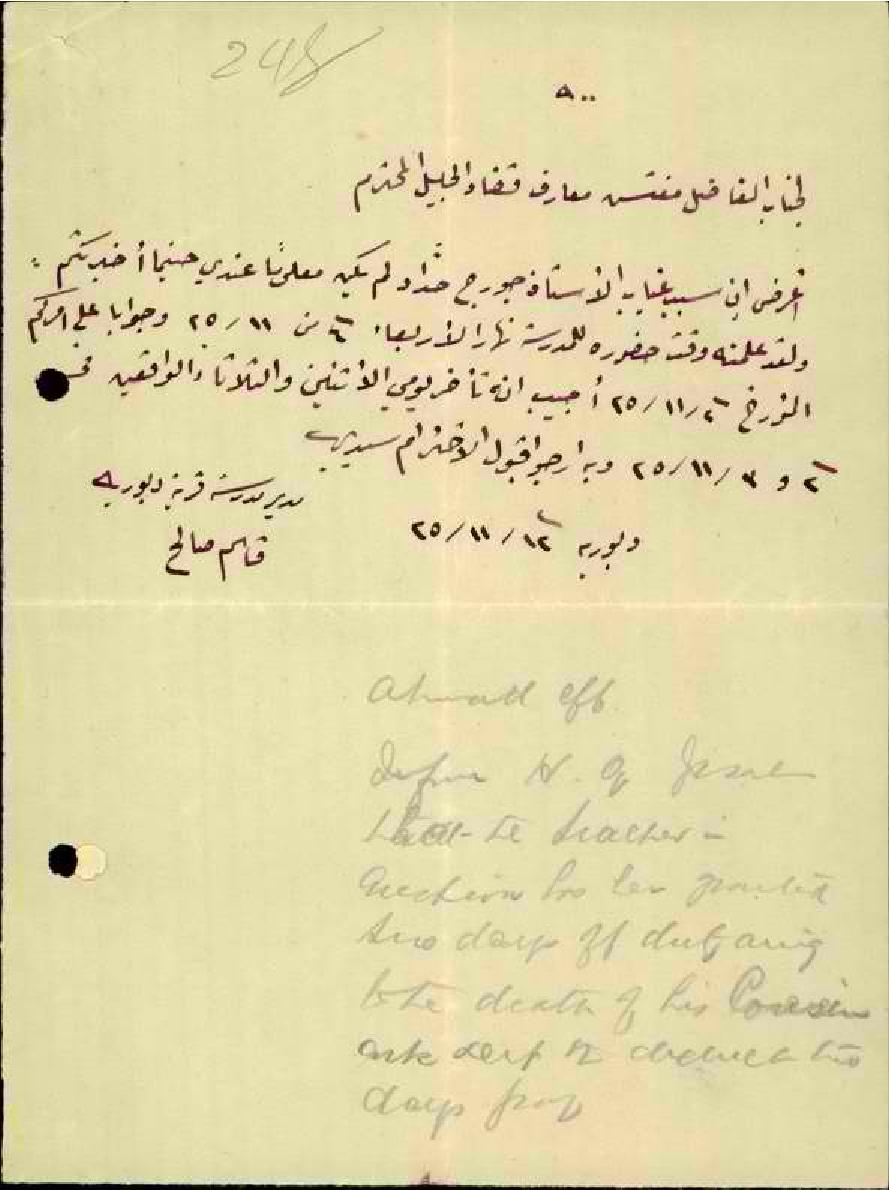 248
لجناب الفاضل مفتش معارف قضاء الجليل المحترم
أعرض ان سبب غياب الاستاذ جورج حداد لم يكن معلومًا عندي حينما أخبرتكم
ولقد علمته وقت حضوره للمدرسة نهار الأربعاء ٤ من ١١/٢٥ وجوابا على امركم
المؤرخ ٢٥/١١/ أجيب انه تأخر يومي الأثنين والثلاثاء الواقعين في
٢ و ٣/١١/٢٥ وبه ارجو قبول الاحترام سيدي
مدير مدرسة قرية دبورية
دبوريه ١٢/١١/٢٥
قاسم صالح
Ahmad eff.
Inform H. of
that the teacher in
question has been granted
two days off duty owing
to the death of his Cousin
ask dept to deduct two
days pay